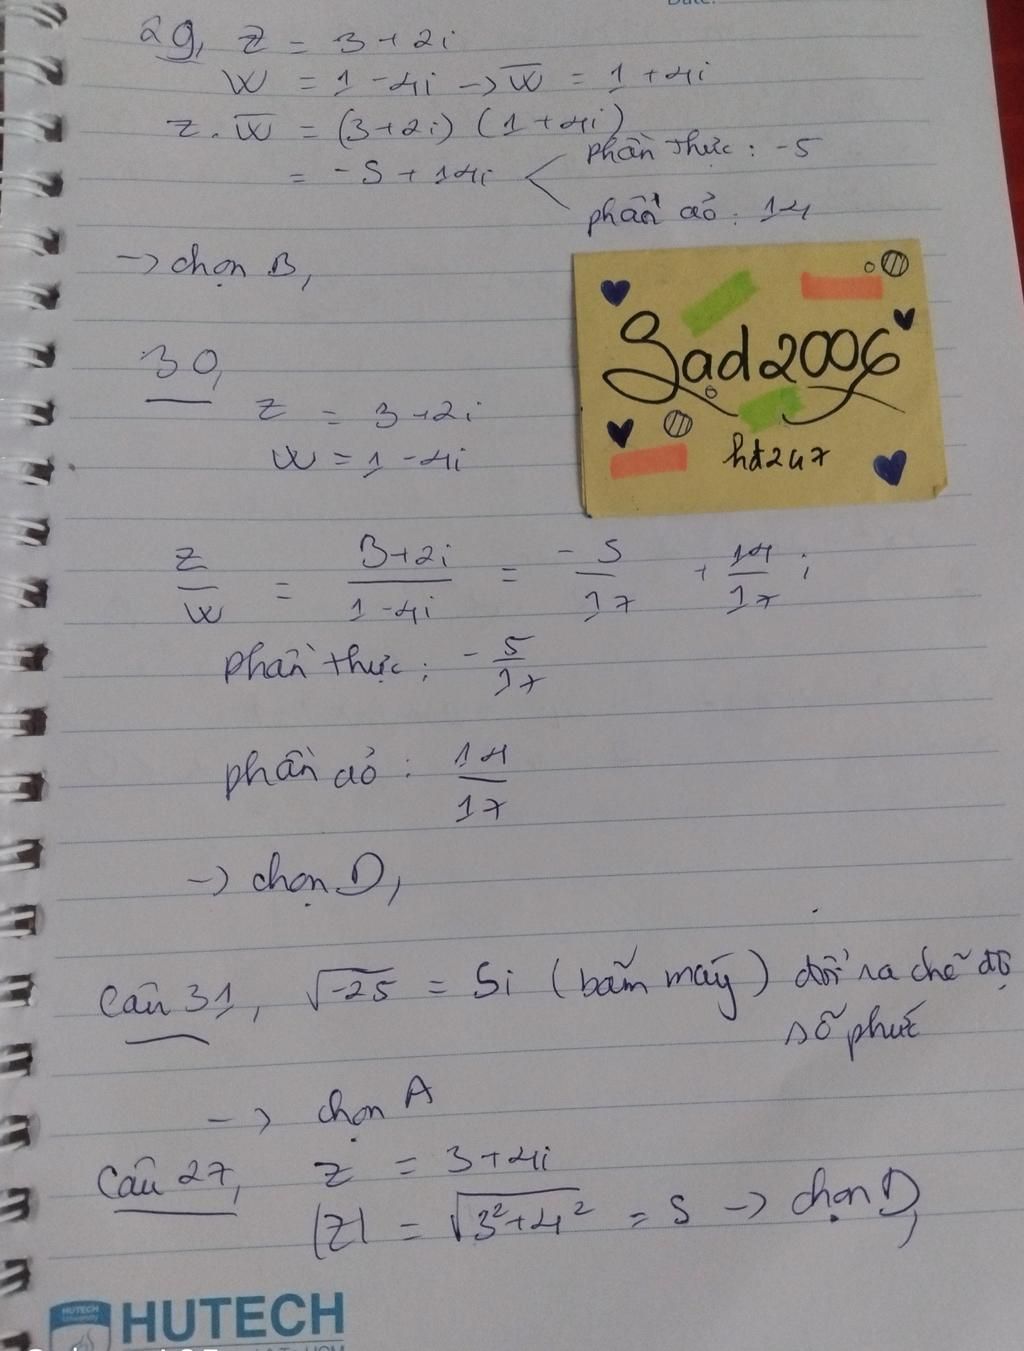 Date:
29, z = 3+2i
w = 1-4i -> w̅ = 1+4i
z . w̅ = (3+2i) (1+4i)
= -5+14i < phần thực : -5
phần ảo : 14
-> chọn B,
Sad2006
hđ247
30,
z = 3+2i
w = 1-4i
z/w = 3+2i/1-4i = -5/17 + 14/17 i
phần thực : -5/17
phần ảo : 14/17
-> chọn D,
Câu 31, √-25 = 5i (bấm máy) đổi ra chế độ
số phức
-> chọn A
Câu 27, z = 3+4i
|z| = √3²+4² = 5 -> chọn D,
HUTECH
HUTECH